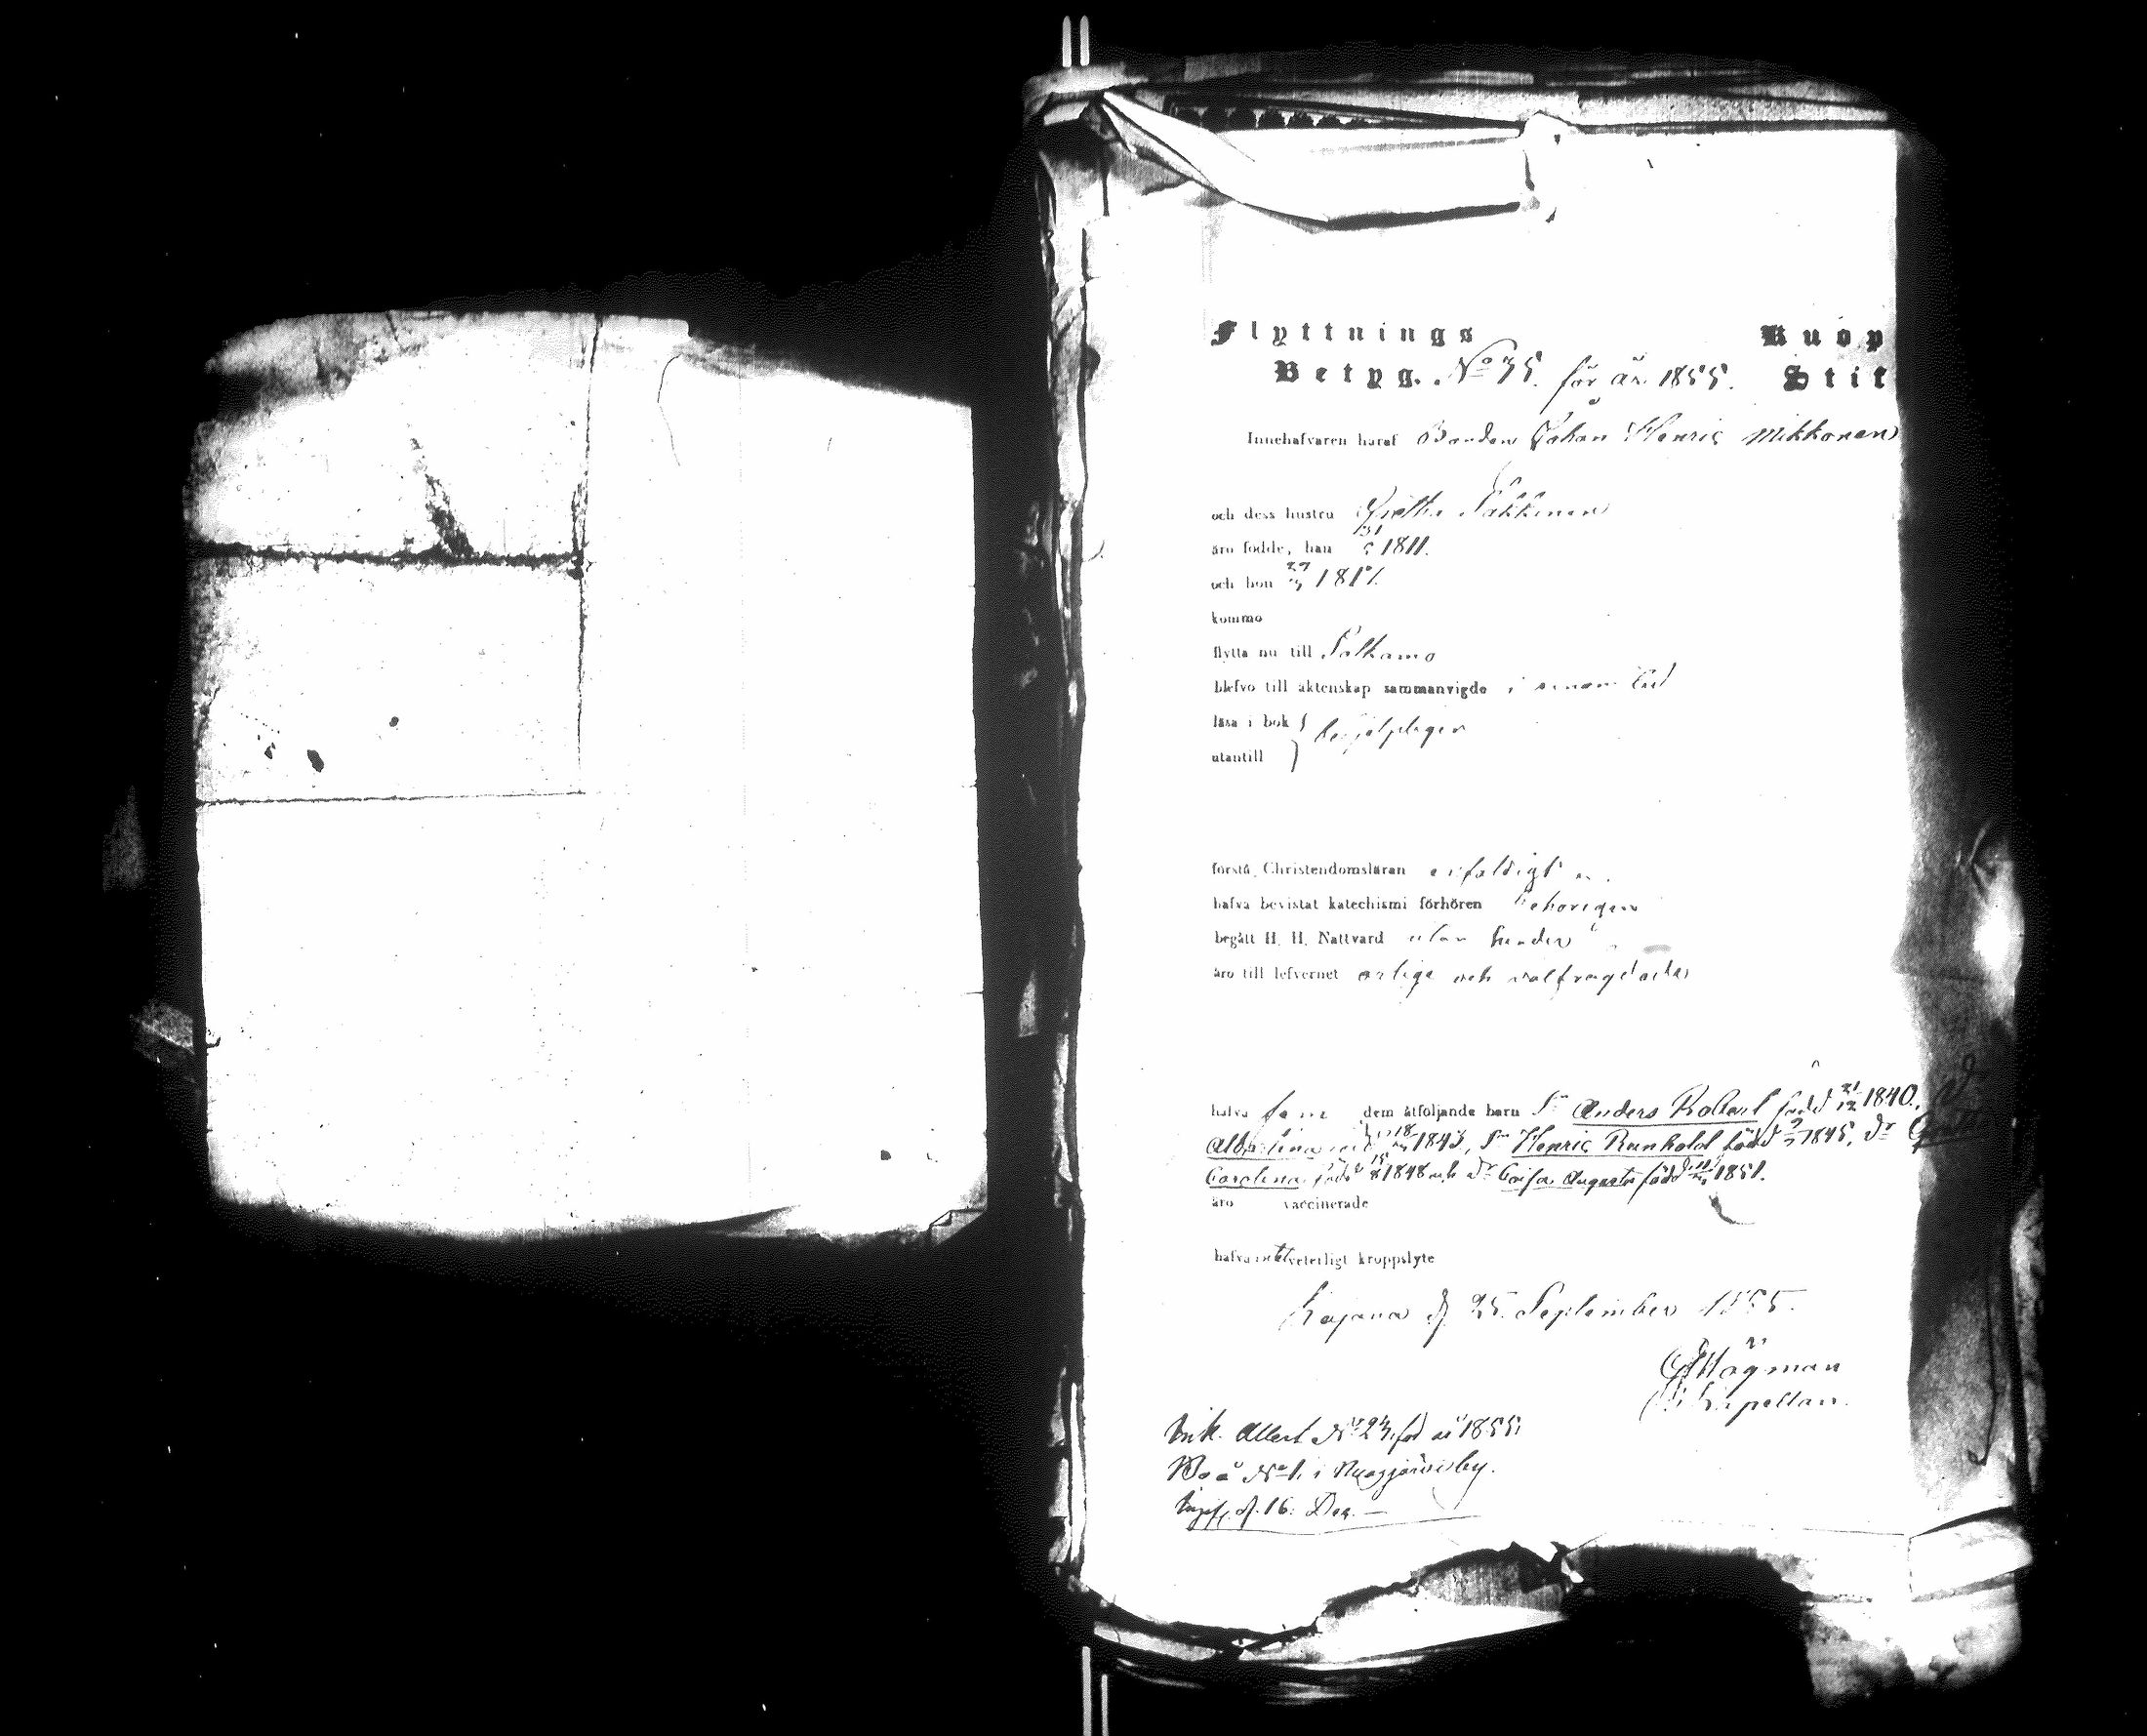 Flyttnings Kuop
Betyg. No 75. för år 1855. Stif
Innehafvaren häraf Bonden Johan Henric Mikkonen
och dess hustru Gretha Säkkinen
äro födde, han 1811.
och hon 27 181
kommo
flytta nu till Sotkamo
blefvo till äktenskap sammanvigde i sinom tid
läsa i bok
utantill
förstå Christendomsläran enfaldigt
hafva bevistat katechismi förhören behörigen
begått H. H. Nattvard utan hinder
äro till lefvernet ärlige och välfrägdade
hafva fem dem åtföljande barn Sn Anders Robert född 21/12 1840, D
Albertina född 18 1843, Sn Henric Reinhold född 1845, Dr Greta
Carolina född 15/8 1848 och Dr Caisa Augusta född 1851.
äro vaccinerade
hafva intet veterligt kroppslyte
Kajana d. 25 September 1855.
Hägman
Kapellan.
Ink. Attest No 23 för år 1855.
No 1. i
d. 16. Dec.